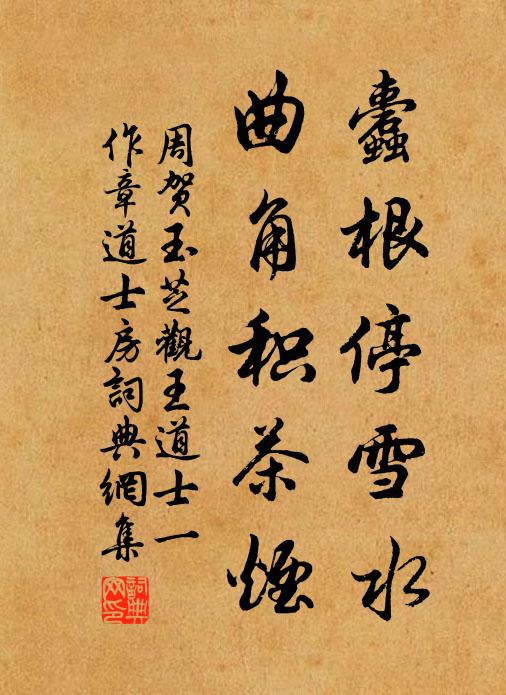 蠹根停雪水
曲角积茶煙
周贺玉芝觀王道士一
作章道士房詞典網集
詞典網印